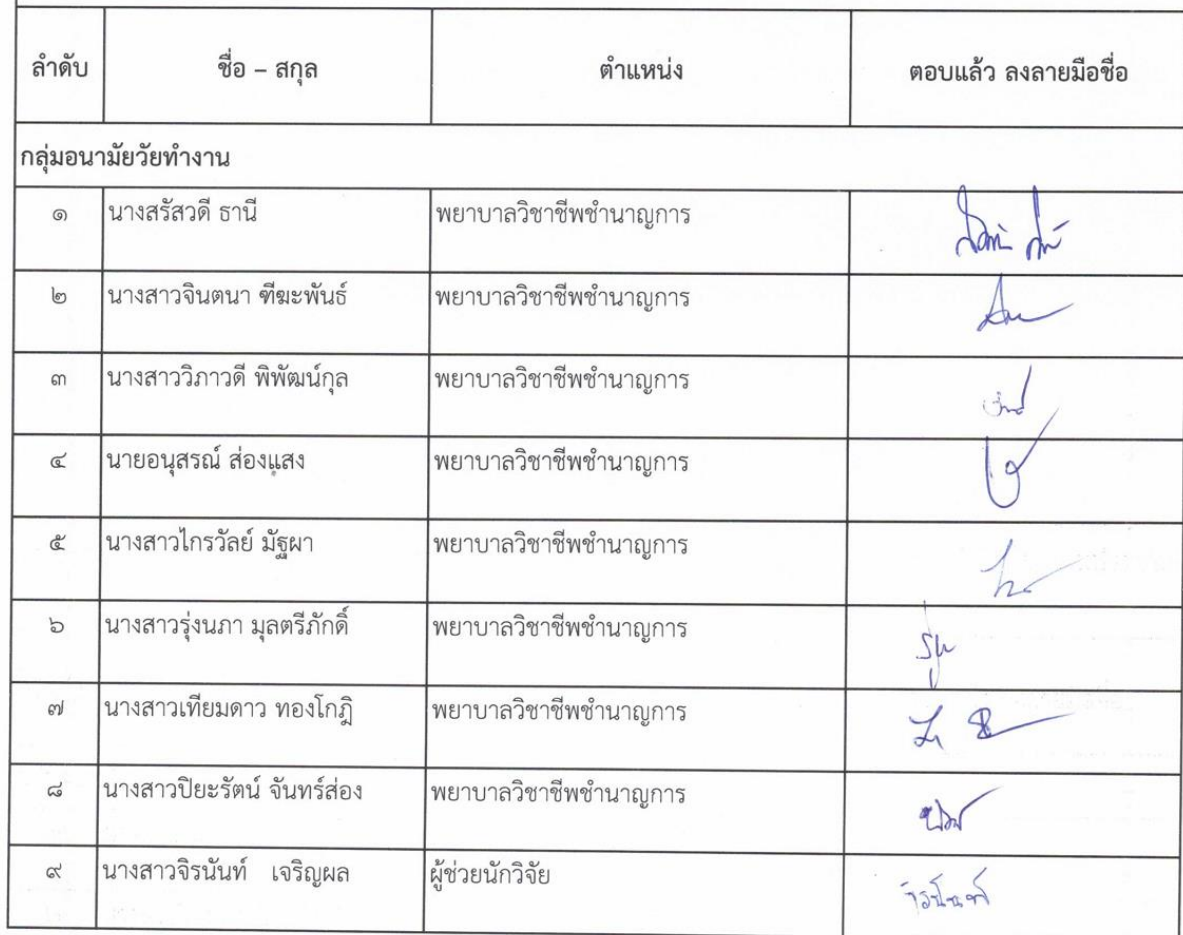 ลำดับ ชื่อ – สกุล ตำแหน่ง ตอบแล้ว ลงลายมือชื่อ
กลุ่มอนามัยวัยทำงาน
๑ นางสรัสวดี ธานี พยาบาลวิชาชีพชำนาญการ
๒ นางสาวจินตนา ฑีฆะพันธ์ พยาบาลวิชาชีพชำนาญการ
๓ นางสาววิภาวดี พิพัฒน์กุล พยาบาลวิชาชีพชำนาญการ
๔ นายอนุสรณ์ ส่องแสง พยาบาลวิชาชีพชำนาญการ
๕ นางสาวไกรวัลย์ มัฐผา พยาบาลวิชาชีพชำนาญการ
๖ นางสาวรุ่งนภา มุลตรีภักดิ์ พยาบาลวิชาชีพชำนาญการ
๗ นางสาวเทียมดาว ทองโกฎิ พยาบาลวิชาชีพชำนาญการ
๘ นางสาวปิยะรัตน์ จันทร์ส่อง พยาบาลวิชาชีพชำนาญการ
๙ นางสาวจิรนันท์ เจริญผล ผู้ช่วยนักวิจัย จิรนันท์